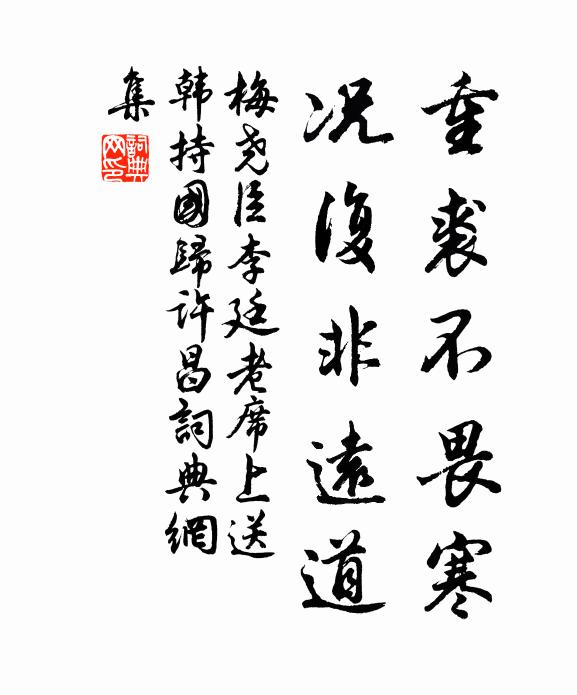 重裘不畏寒
况復非遠道
梅堯臣李廷老席上送
韩持國歸许昌詞典網
集
詞典網印